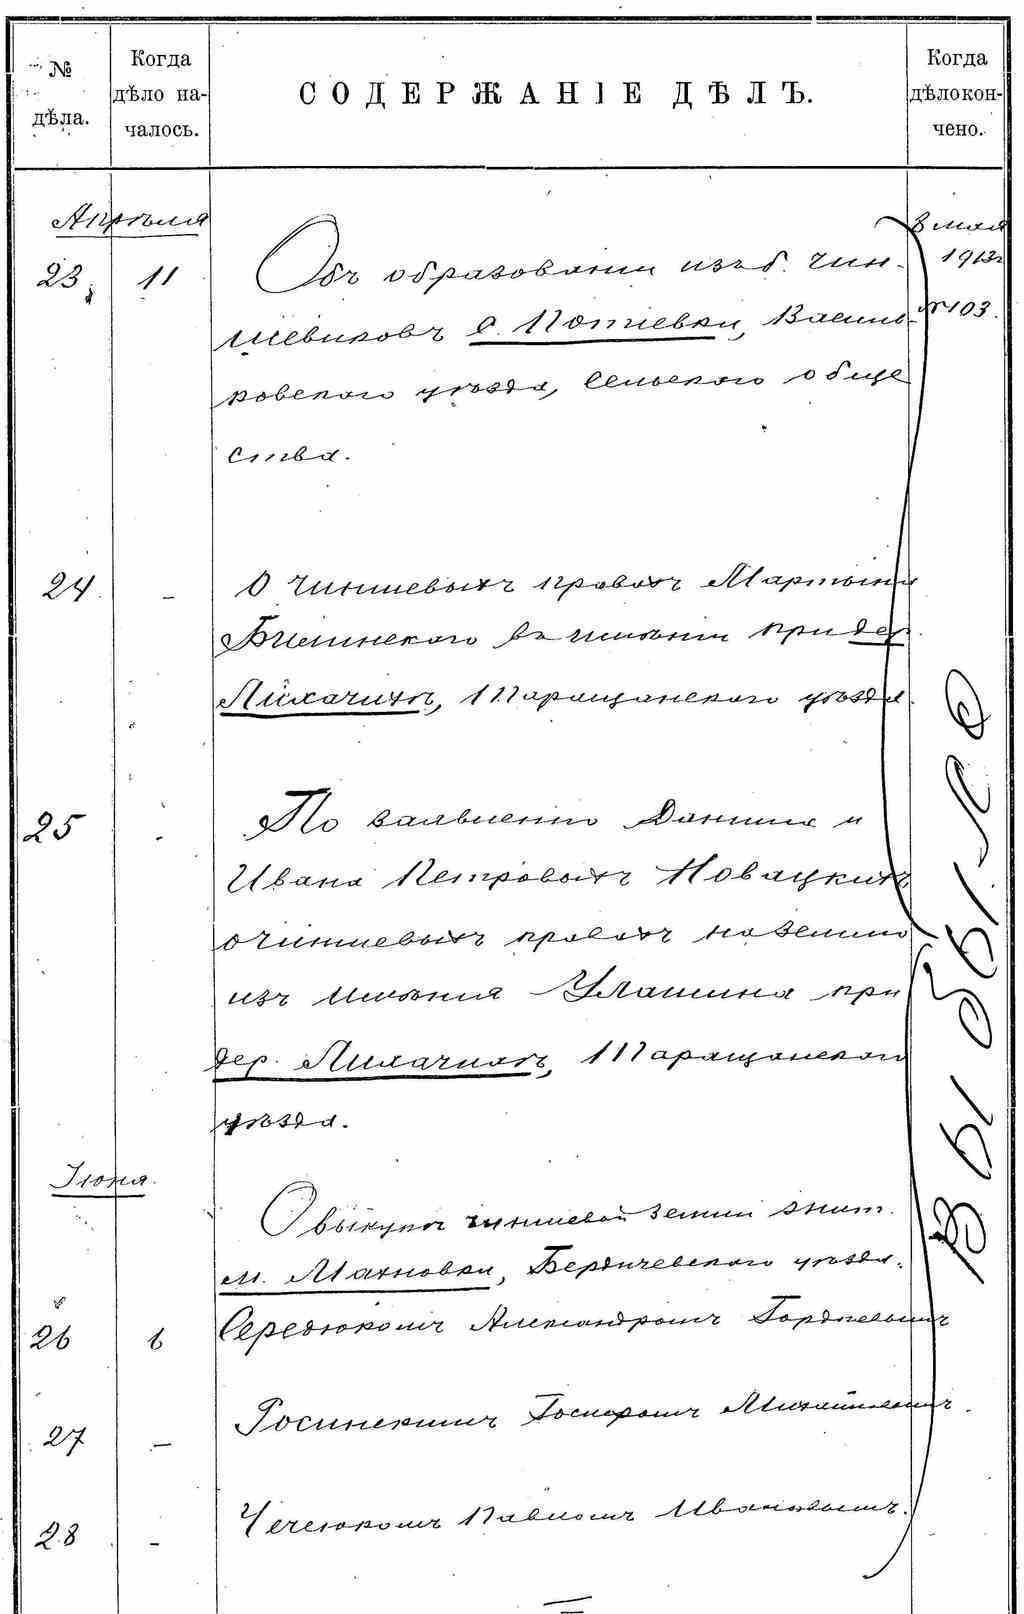 № дѣла.
Когда дѣло на-
чалось.
СОДЕРЖАНІЕ ДѢЛЪ.
Когда
дѣло кон-
чено.
Апрѣля
3 мая
1912 г.
№ 103.
23. 11 Объ образованіи изъ б. чин-
шевиковъ с. Потіевки, Василь-
ковскаго уѣзда, сельскаго обще
ства.
24. – О чиншевыхъ правахъ Мартына
Билинскаго въ имѣніи при дер.
Лихачихѣ, Таращанскаго уѣзда.
25 - По заявленію Данила и
Ивана Петровыхъ Новацкихъ
о чиншевыхъ правахъ на землю
изъ имѣнія Улашина при
дер. Лихачихѣ, Таращанскаго
уѣзда.
Іюня.
О выкупѣ чиншевой земли жит.
м. Махновки, Бердичевскаго уѣзда.
26 6 Середюкомъ Александромъ Гордѣевымъ
27 – Росинскимъ Іосифомъ Михайловымъ.
28 - Чечеюкомъ Павломъ Ивановымъ.
Выбыло